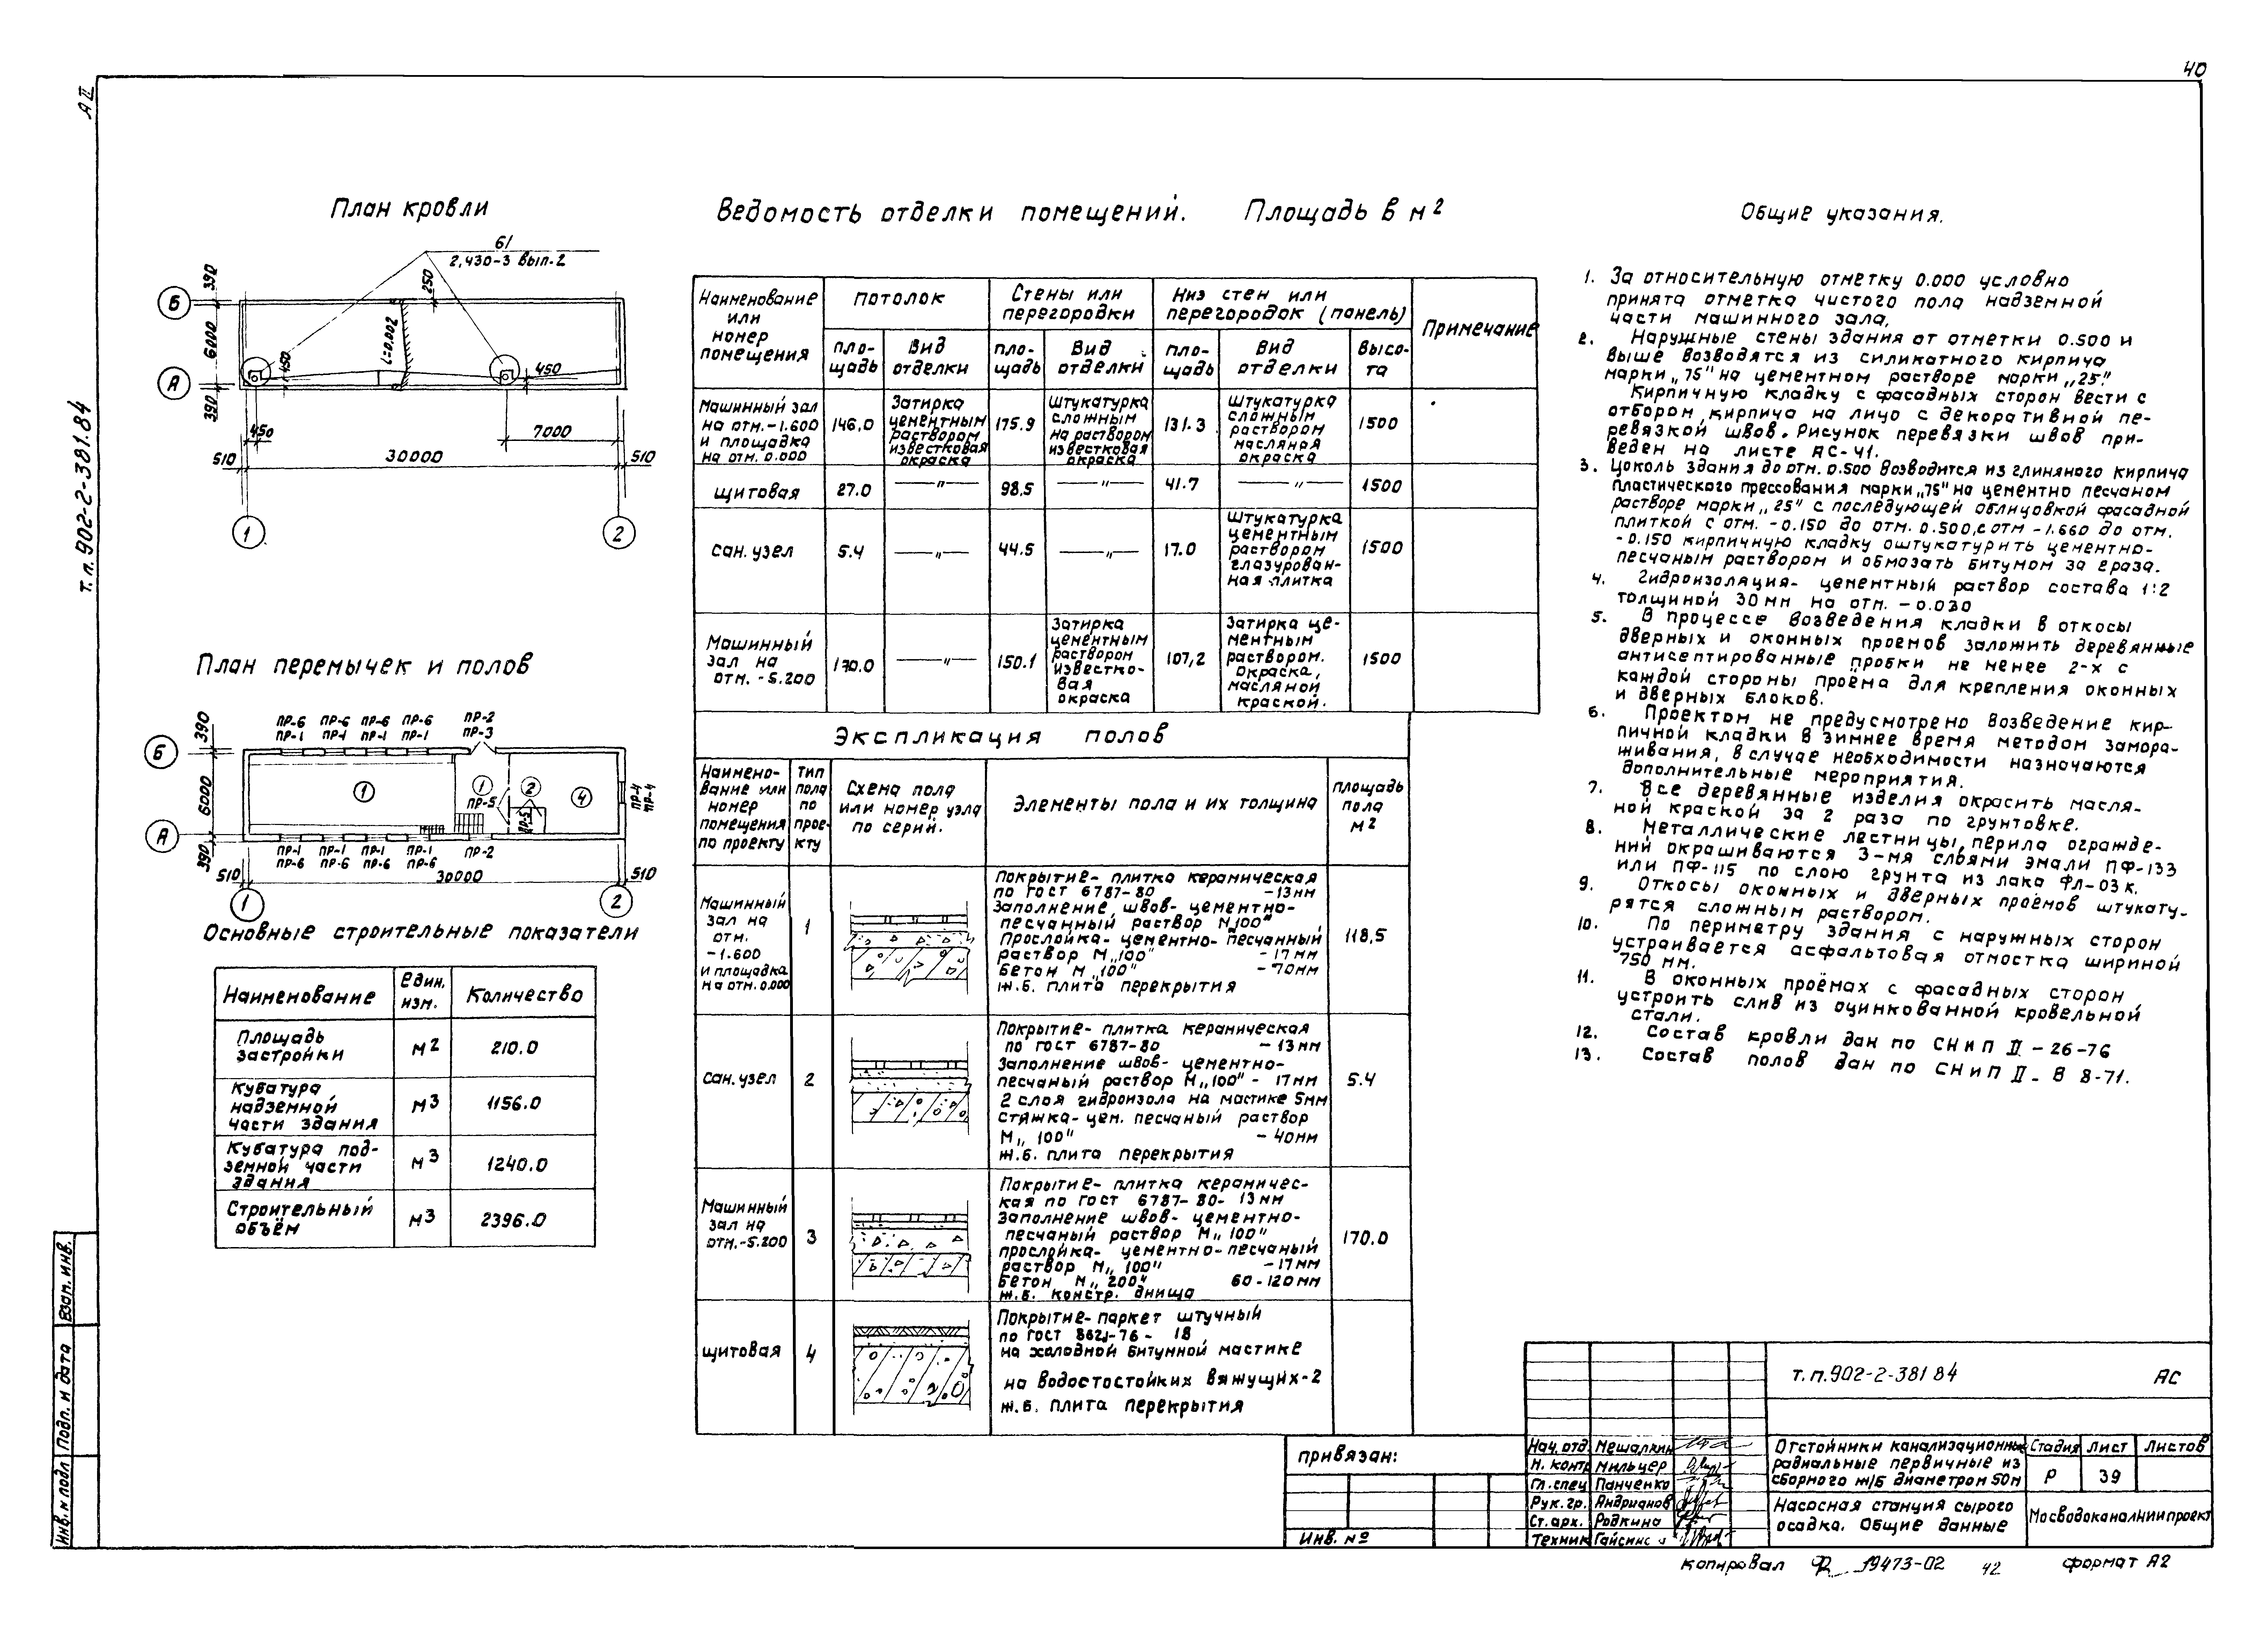 40
А II
т.п. 902-2-381.84
План кровли
61
2.430-3 вып.2
Б
А
390
6000
390
250
i=0.002
450
450
450
7000
510
30000
510
1
2
План перемычек и полов
ПР-6 ПР-6 ПР-6 ПР-6 ПР-2
ПР-1 ПР-1 ПР-1 ПР-1 ПР-3
Б
А
390
6000
390
1
1
2
4
ПР-5
ПР-5
ПР-4
ПР-4
ПР-1 ПР-1 ПР-1 ПР-1 ПР-2
ПР-6 ПР-6 ПР-6 ПР-6
510
30000
510
1
2
Основные строительные показатели
Наименование
Един.
изм.
Количество
Площадь
застройки
м2
210.0
Кубатура
надземной
части здания
м3
1156.0
Кубатура под-
земной части
здания
м3
1240.0
Строительный
объём
м3
2396.0
Ведомость отделки помещений. Площадь в м2
Наименование
или
номер
помещения
Потолок
Стены или
перегородки
Низ стен или
перегородок (панель)
Примечание
пло-
щадь
Вид
отделки
пло-
щадь
Вид
отделки
пло-
щадь
Вид
отделки
Высо-
та
Машинный зал
на отм.-1.600
и площадка
на отм. 0.000
146.0
Затирка
цементным
раствором
известковая
окраска
175.9
Штукатурка
сложным
на раствором
известковая
окраска
131.3
Штукатурка
сложным
раствором
масляная
окраска
1500
щитовая
27.0
—"—
98.5
—"—
41.7
—"—
1500
сан. узел
5.4
—"—
44.5
—"—
17.0
Штукатурка
цементным
раствором
глазурован-
ная плитка
1500
Машинный
зал на
отм. -5.200
170.0
—"—
150.1
Затирка
цементным
раствором
известко-
вая
окраска
107,2
Затирка це-
ментным
раствором.
окраска,
масляной
краской.
1500
Экспликация полов
Наимено-
вание или
номер
помещения
по проекту
Тип
пола
по
прое-
кту
Схема пола
или номер узла
по серий.
Элементы пола и их толщина
площадь
пола
м2
Машинный
зал на
отм.
-1.600
и площадка
на отм. 0.000
1
Покрытие- плитка керамическая
по ГОСТ 6787-80 -13мм
Заполнение швов- цементно-
песчанный раствор М„100"
Прослойка- цементно- песчанный
раствор М„100" -17мм
Бетон М„100" -70мм
ж.б. плита перекрытия
118,5
сан. узел
2
Покрытие- плитка керамическая
по ГОСТ 6787-80 -13мм
Заполнение швов- цементно-
песчаный раствор М„100"- 17мм
2 слоя гидроизола на мастике 5мм
стяжка- цем. песчаный раствор
М„100" -40мм
ж.б. плита перекрытия
5.4
Машинный
зал на
отм.-5.200
3
Покрытие- плитка керамичес-
кая по ГОСТ 6787-80- 13мм
Заполнение швов- цементно-
песчаный раствор М„100"
прослойка- цементно-песчаный
раствор М„100" -17мм
Бетон М„200" 60-120мм
ж.б. констр. днища
170.0
щитовая
4
Покрытие-паркет штучный
по ГОСТ 862.1-76- 18
на холодной битумной мастике
на водостостойких вяжущих-2
ж.б. плита перекрытия
Общие указания.
1. За относительную отметку 0.000 условно
принята отметка чистого пола надземной
части машинного зала.
2. Наружные стены здания от отметки 0.500 и
выше возводятся из силикатного кирпича
марки „75" на цементном растворе марки „25".
Кирпичную кладку с фасадных сторон вести с
отбором кирпича на лицо с декоративной пе-
ревязкой швов. Рисунок перевязки швов при-
веден на листе АС-41.
3. Цоколь здания до отм. 0.500 возводится из глиняного кирпича
пластического прессования марки „75" на цементно песчаном
растворе марки „25" с последующей облицовкой фасадной
плиткой с отм. -0.150 до отм. 0.500, с отм -1.660 до отм.
-0.150 кирпичную кладку оштукатурить цементно-
песчаным раствором и обмазать битумом за 2 раза.
4. Гидроизоляция- цементный раствор состава 1:2
толщиной 30мм на отм. -0.030
5. В процессе возведения кладки в откосы
дверных и оконных проемов заложить деревянные
антисептированные пробки не менее 2-х с
каждой стороны проёма для крепления оконных
и дверных блоков.
6. Проектом не предусмотрено возведение кир-
пичной кладки в зимнее время методом замора-
живания, в случае необходимости назначаются
дополнительные мероприятия.
7. Все деревянные изделия окрасить масля-
ной краской за 2 раза по грунтовке.
8. Металлические лестницы, перила огражде-
ний окрашиваются 3-мя слоями эмали ПФ-133
или ПФ-115 по слою грунта из лака ФЛ-03к.
9. Откосы оконных и дверных проёмов штукату-
рятся сложным раствором.
10. По периметру здания с наружных сторон
устраивается асфальтовая отмостка шириной
750 мм.
11. В оконных проёмах с фасадных сторон
устроить слив из оцинкованной кровельной
стали.
12. Состав кровли дан по СНиП II-26-76
13. Состав полов дан по СНиП II-В 8-71.
привязан:
Инв. №
Нач. отд. Мешалкин
Н. контр Мильцер
Гл. спец Панченко
Рук. гр. Андрианов
Ст. арх. Родкина
Техник Гайсинс
т.п. 902-2-381 84
АС
Отстойники канализационные
радиальные первичные из
сборного ж/б диаметром 50м
Стадия Лист Листов
Р 39
Насосная станция сырого
осадка. Общие данные
МосводоканалНИИпроект
Инв. № подл
Подп. и дата
Взам. инв.
копировал 19473-02 42 формат А2